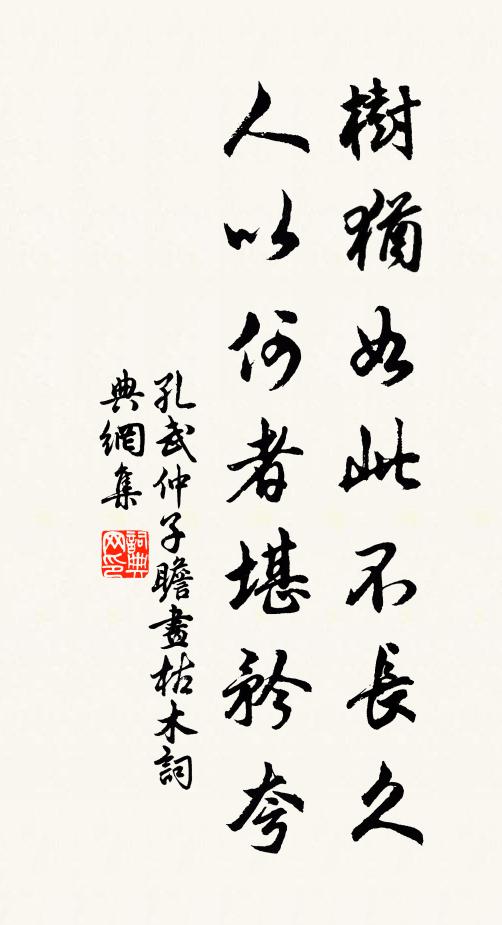 樹猶如此不長久
人以何者堪矜夸
孔武仲子瞻畫枯木詞
典網集
詞典
网印